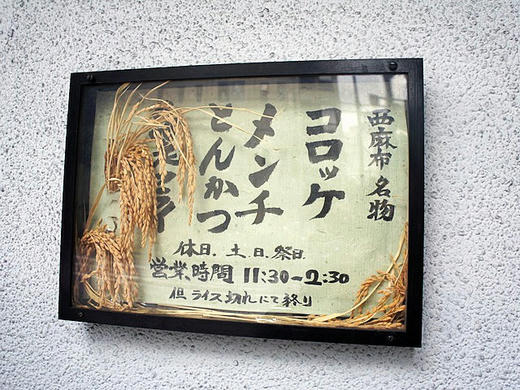 西麻布名物
コロッケ
メンチ
とんかつ
休日.土.日.祭日.
営業時間 11:30〜2:30
但ライス切れにて終り